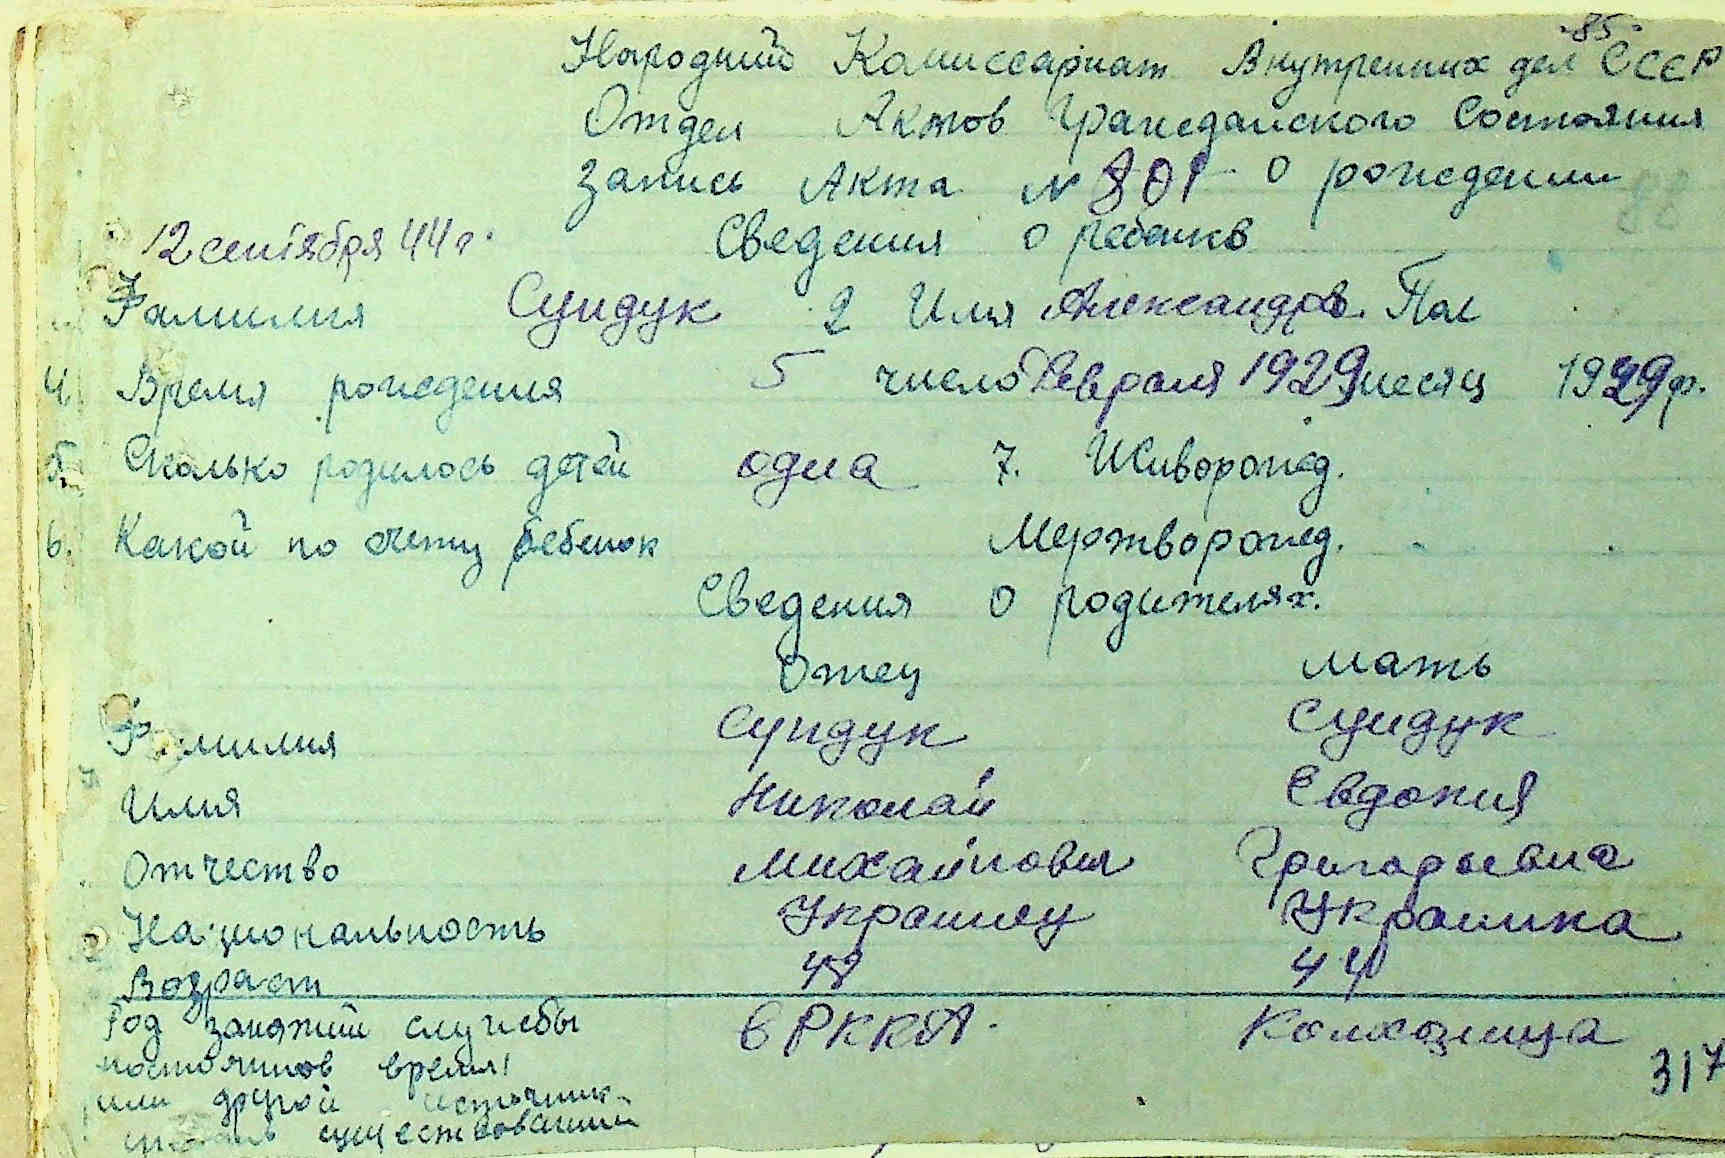 85
Народний Комиссариат Внутренних дел СССР
Отдел Актов Гражданского Состояния
Запись Акта № 801 о рождении
88
12 сентября 44 г. Сведения о ребенке
Фамилия Сундук 2 Имя Александра. Пол
4. Время рождения 5 число Февраля 1929 месяц 1929 р.
5. Сколько родилось детей одна 7. Живорожд.
6. Какой по счету ребенок Мертворожд.
Сведения о родителях.
Отец мать
Фамилия Сундук Сундук
Имя Николай Евдокия
Отчество Михайлович Григорьевна
Национальность Украинец Украинка
Возраст 48 44
Род занятий службы в РККА. Колхозница
постоянное время
или другой источник 317
существований